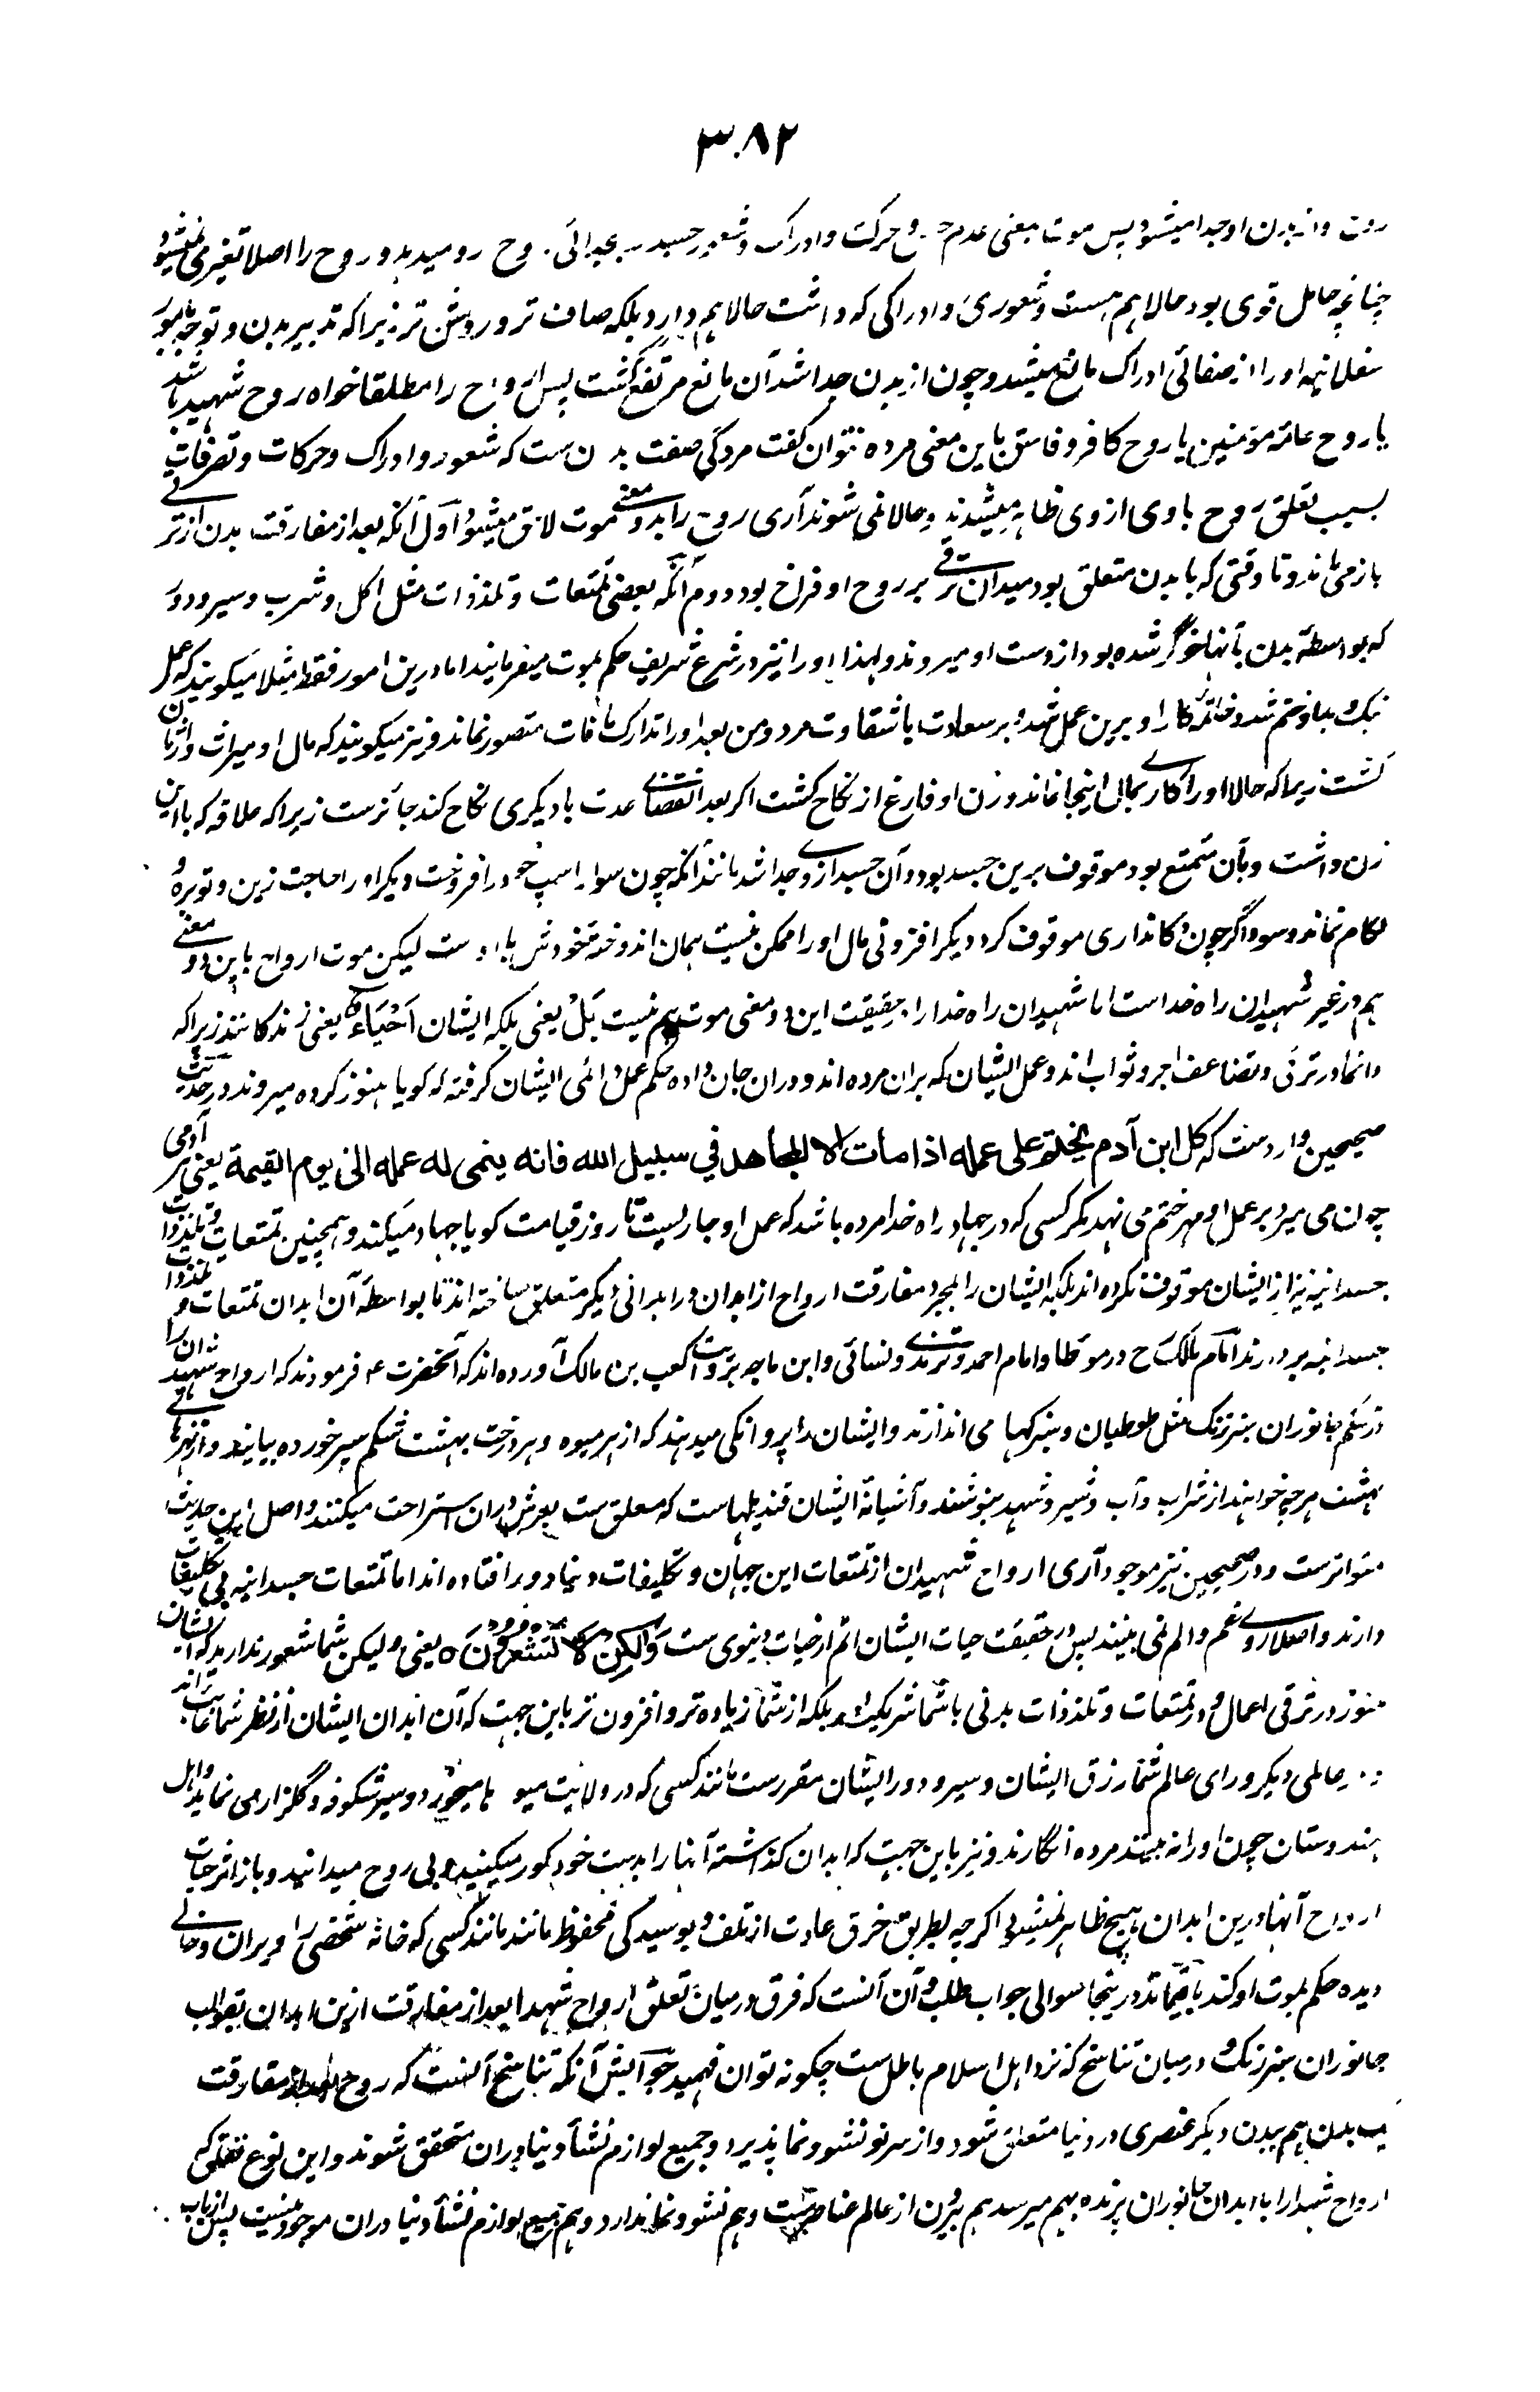 ۳۸۲
روح از بدن او جدا میشود پس موت بمعنی عدم حس و حرکت و ادراک و شعور جسد بجدائی روح رو میدهد و روح را اصلا تغیر نمیشود
چنانچه حامل قوی بود حالا هم هست و شعوری و ادراکی که داشت حالا هم دارد بلکه صاف تر و روشن تر زیرا که تدبیر بدن و توجه بامور
سفلانیه او را از صفائی ادراک مانع میشد و چون از بدن جدا شد آن مانع مرتفع گشت پس ارواح را مطلقا خواه روح شهید باشد
یا روح عامه مومنین یا روح کافر و فاسق باین معنی مرده نتوان گفت مردگی صفت بدن ست که شعور و ادراک و حرکات و تصرفات
بسبب تعلق روح با وی از وی ظاهر میشدند و حالا نمی شوند آری روح را بدو معنی موت لاحق میشود اول آنکه بعد از مفارقت بدن از ترقی
باز می ماند و تا وقتی که با بدن متعلق بود میدان ترقی بر روح او فراخ بود دوم آنکه بعضی تمتعات و تلذذات مثل اکل و شرب و سیر و دور
که بواسطه بدن بآنها خوگر شده بود از دست او میروند و لهذا او را نیز در شرع شریف حکم بموت میفرمایند اما درین امور فقط مثلا میگویند که عمل
نیک و بد او ختم شد و خاتمه کار او برین عمل شد و بر سعادت یا شقاوت مرد و من بعد او را تدارک مافات متصور نماند و نیز میگویند که مال او میراث وارثان
گشت زیرا که حالا او را کاری بمال اینجا نماند و زن او فارغ از نکاح گشت اگر بعد انقضای عدت با دیگری نکاح کند جائز ست زیرا که علاقه که با این
زن داشت و بآن متمتع بود موقوف برین جسد بود و آن جسد از وی جدا شد مانند آنکه چون سوار اسپ خود را فروخت دیگر او را حاجت زین و توبره و
لگام نماند و سوداگر چون دکانداری موقوف کرد دیگر افزونی مال او را ممکن نیست همان اندوخته خودش با اوست لیکن موت ارواح باین دو معنی
هم در غیر شهیدان راه خداست اما شهیدان راه خدا را بحقیقت این دو معنی موت هم نیست بَلْ یعنی بلکه ایشان اَحْیَاءٌ یعنی زندگانند زیرا که
دائما در ترقی و تضاعف اجر و ثواب اند و عمل ایشان که بران مرده اند و دران جان داده حکم عمل دائمی ایشان گرفته که گویا هنوز کرده میروند در حدیث
صحیحین وارد ست که کل ابن آدم یختم علی عمله اذا مات الا المجاهد في سبیل الله فانه ینمی له عمله الی یوم القیمة یعنی هر آدمی
چون می میرد بر عمل او مهر ختم می نهد مگر کسی که در جهاد راه خدا مرده باشد که عمل او جاریست تا روز قیامت گویا جهاد میکند و همچنین تمتعات و تلذذات
جسدانیه نیز از ایشان موقوف نکرده اند بلکه ایشان را بمجرد مفارقت ارواح از ابدان در ابدانی دیگر متعلق ساخته اند تا بواسطه آن ابدان تمتعات و تلذذات
جسدانیه بردارند امام مالک رح در موطا و امام احمد و ترمذی و نسائی و ابن ماجه بروایت کعب بن مالک آورده اند که آنحضرت ؑ فرمودند که ارواح شهیدان را
در شکم جانوران سبز رنگ مثل طوطیان و سبزکها می اندازند و ایشان را پروانگی میدهند که از هر میوه و هر درخت بهشت شکم سیر خورده بیایند و از نهرهای
بهشت هر چه خواهند از شراب و آب و شیر و شهد بنوشند و آشیانه ایشان قندیلهاست که معلق ست بعرش دران استراحت میکنند و اصل این حدیث
متواتر ست و در صحیحین نیز موجود آری ارواح شهیدان از تمتعات این جهان و تکلیفات دنیا دور افتاده اند اما تمتعات جسدانیه بی تکلیفات
دارند و اصلا روی غم و الم نمی بینند پس در حقیقت حیات ایشان اتم از حیات دنیوی ست وَلٰکِنْ لَا تَشْعُرُوْنَ ۝ یعنی و لیکن شما شعور ندارید که ایشان
هنوز در ترقی اعمال و در تمتعات و تلذذات بدنی با شما شریک اند بلکه از شما زیاده تر و افزون تر باین جهت که آن ابدان ایشان از نظر شما غائب اند
در عالمی دیگر ورای عالم شما رزق ایشان و سیر و دور ایشان مقرر ست مانند کسی که در ولایت میوها میخورد و سیر شگوفه و گلزار می نماید و اهل
هندوستان چون او را نه بینند مرده انگارند و نیز باین جهت که ابدان گذاشته آنها را بدست خود گور میکنید و بی روح میدانید و باز اثر حیات
ارواح آنها درین ابدان هیچ ظاهر نمیشود اگرچه بطریق خرق عادت از تلف و بوسیدگی محفوظ مانند مانند کسی که خانه شخصی را ویران و خالی
دیده حکم بموت او کند باقیماند در ینجا سوالی جواب طلب و آن آنست که فرق درمیان تعلق ارواح شهدا بعد از مفارقت ازین ابدان بقوالب
جانوران سبز رنگ و درمیان تناسخ که نزد اهل اسلام باطل ست چگونه توان فهمید جوابش آنکه تناسخ آنست که روح بعد از مفارقت
یک بدن هم ببدن دیگر عنصری در دنیا متعلق شود و از سر نو نشو و نما پذیرد و جمیع لوازم نشأ دنیا دران متحقق شوند و این نوع تعلق که
ارواح شهدا را با ابدان جانوران پرنده بهم میرسد هم بیرون از عالم عناصر ست و هم نشو و نما ندارد و هم جمیع لوازم نشأ دنیا دران موجود نیست پس از باب